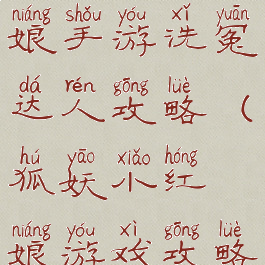 niáng shǒu yóu xǐ yuān
娘手游洗冤
dá rén gōng lüè
达人攻略（
hú yāo xiǎo hóng
狐妖小红
niáng yóu xì gōng lüè
娘游戏攻略